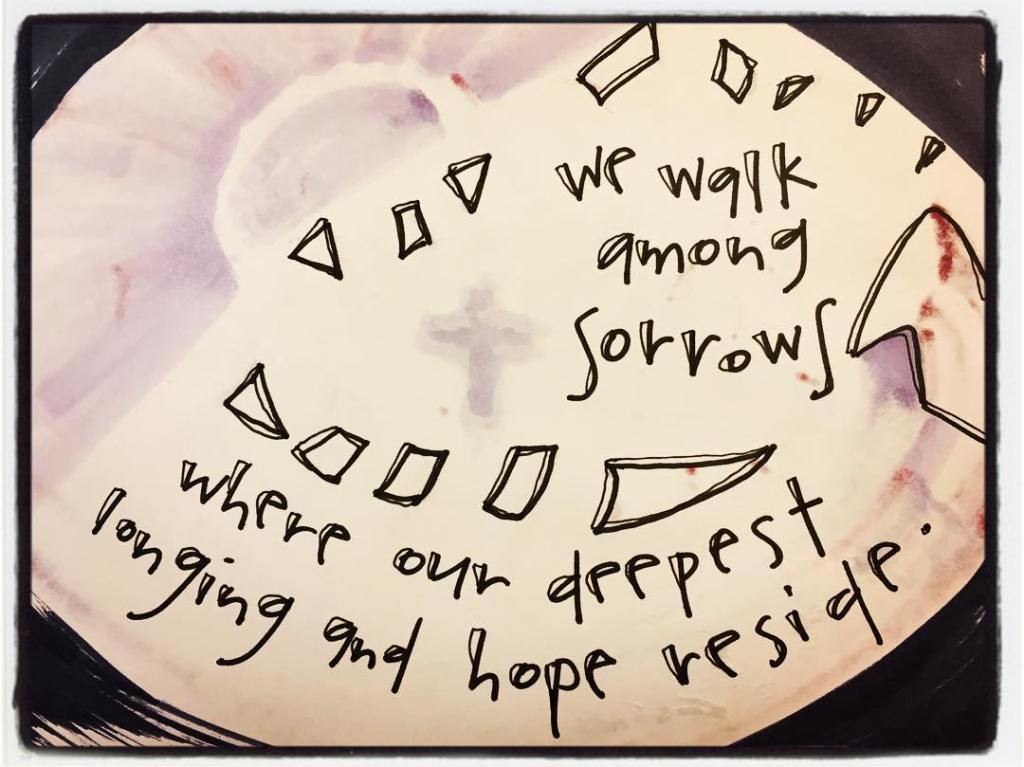 we walk
among
sorrows
where our deepest
longing and hope reside.